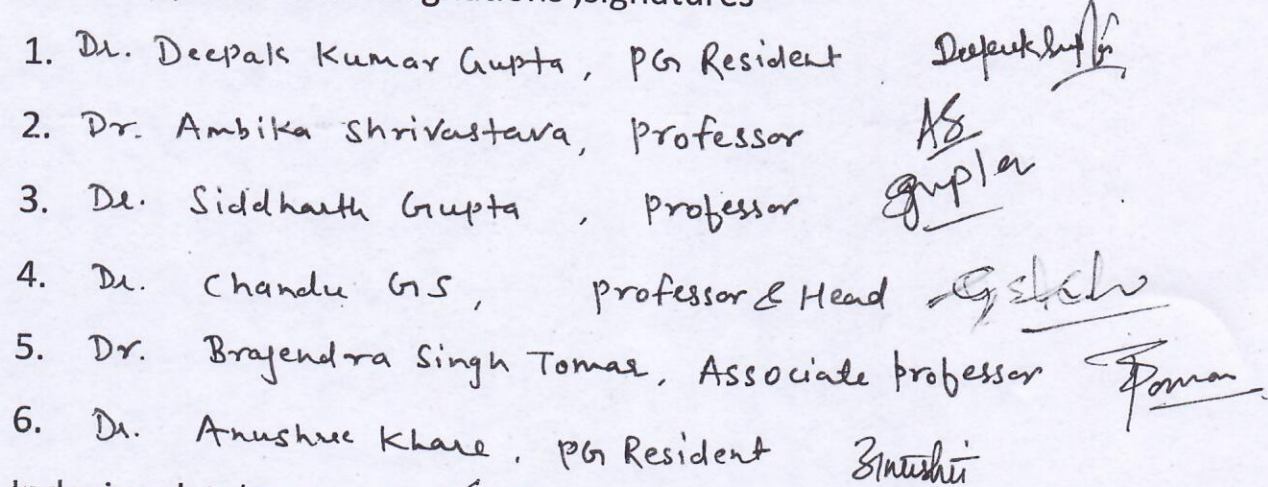 signatures
1. Dr. Deepak Kumar Gupta, PG Resident Deepak
2. Dr. Ambika Shrivastava, Professor AS
3. Dr. Siddharth Gupta, Professor Gupta
4. Dr. Chandu GS, professor & Head
5. Dr. Brajendra Singh Tomar, Associate professor
6. Dr. Anushree Khare, PG Resident